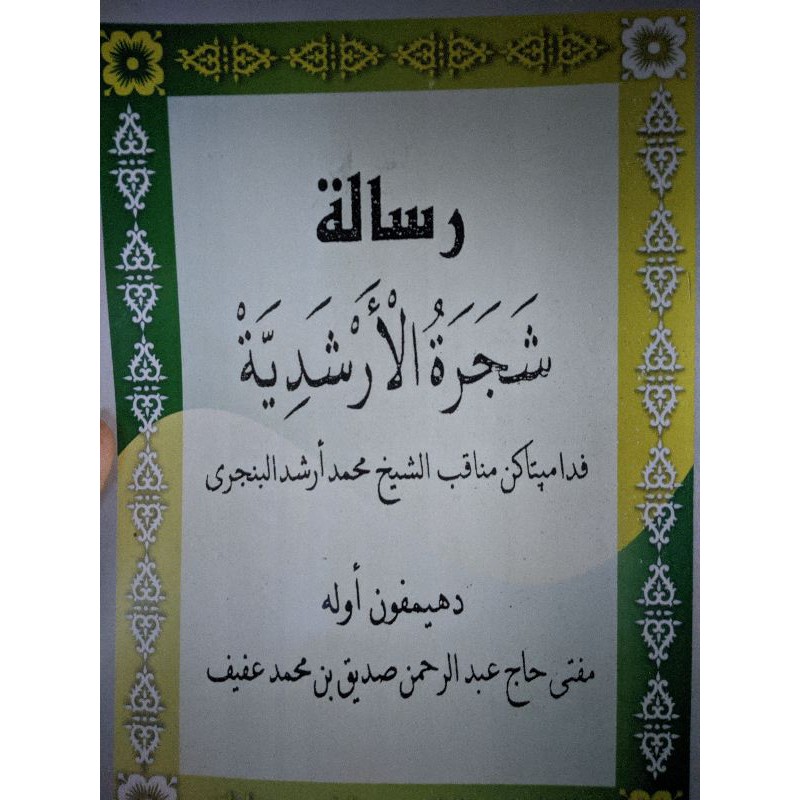 رسالة
شَجَرَةُ الْأَرْشَدِيَّةْ
فدامپتاكن مناقب الشيخ محمد أرشد البنجرى
دهيمفون أوله
مفتى حاج عبد الرحمن صديق بن محمد عفيف